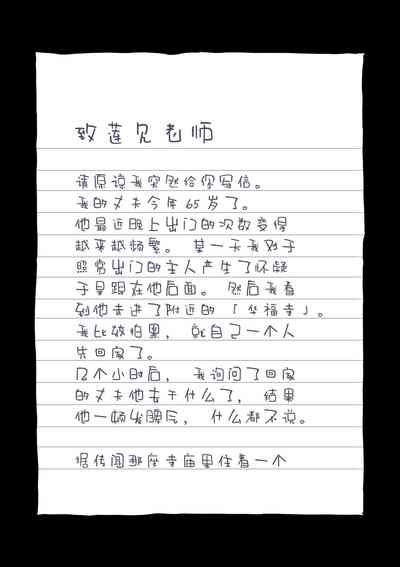 致莲见老师
请原谅我突然给你写信。
我的丈夫今年65岁了。
他最近晚上出门的次数变得
越来越频繁。 某一天我对于
照常出门的主人产生了怀疑
于是跟在他后面。 然后我看
到他走进了附近的「坐福寺」。
我比较怕黑, 就自己一个人
先回家了。
几个小时后, 我询问了回家
的丈夫他去干什么了, 结果
他一顿发脾气, 什么都不说。
据传闻那座寺庙里住着一个